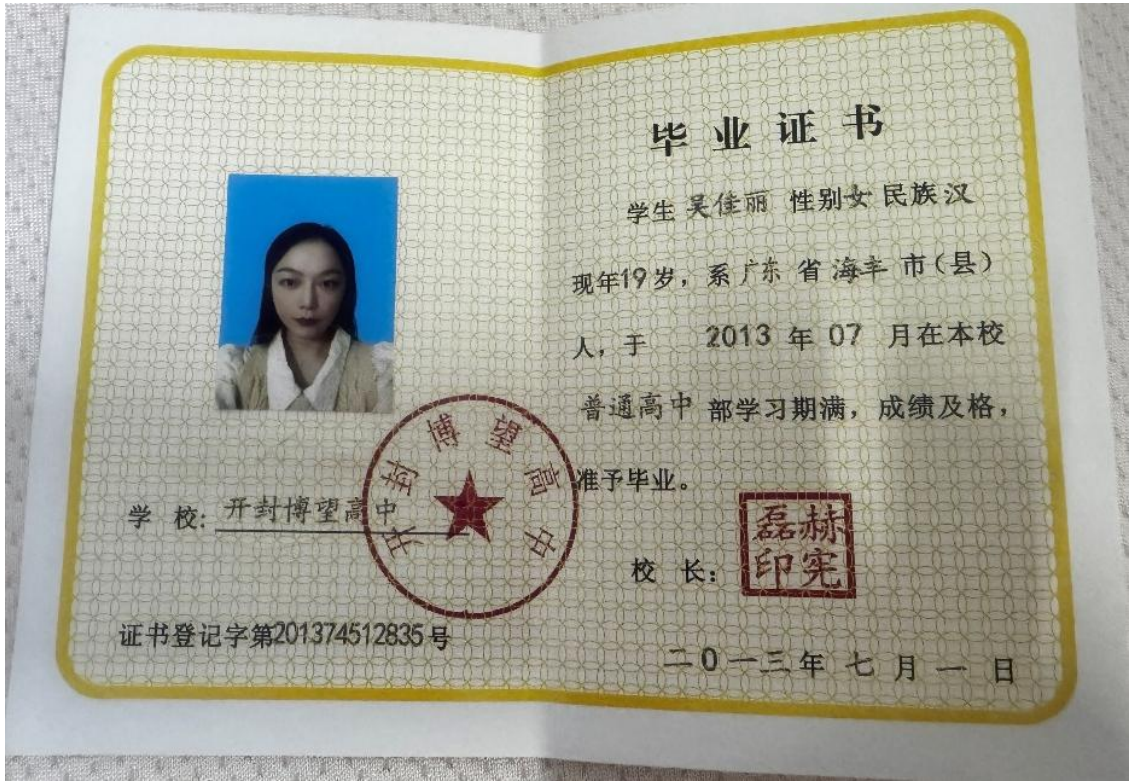 毕业证书
学生 吴佳丽 性别女 民族汉
现年19岁，系广东 省 海丰 市（县）
人，于 2013 年 07 月在本校
普通高中 部学习期满，成绩及格，
准予毕业。
校 长：
磊赫
印宪
二0一三年 七 月 一 日
开封博望高中
学 校: 开封博望高中
证书登记字第201374512835号